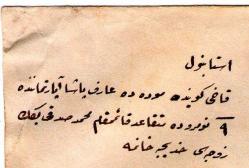 استانبول
قاضی کوینده موده ده عارف پاشا آپارتماننده
٩ نومروده متقاعد قائمقام محمد صدقی بكك
زوجه‌سی خدیجه خانمه